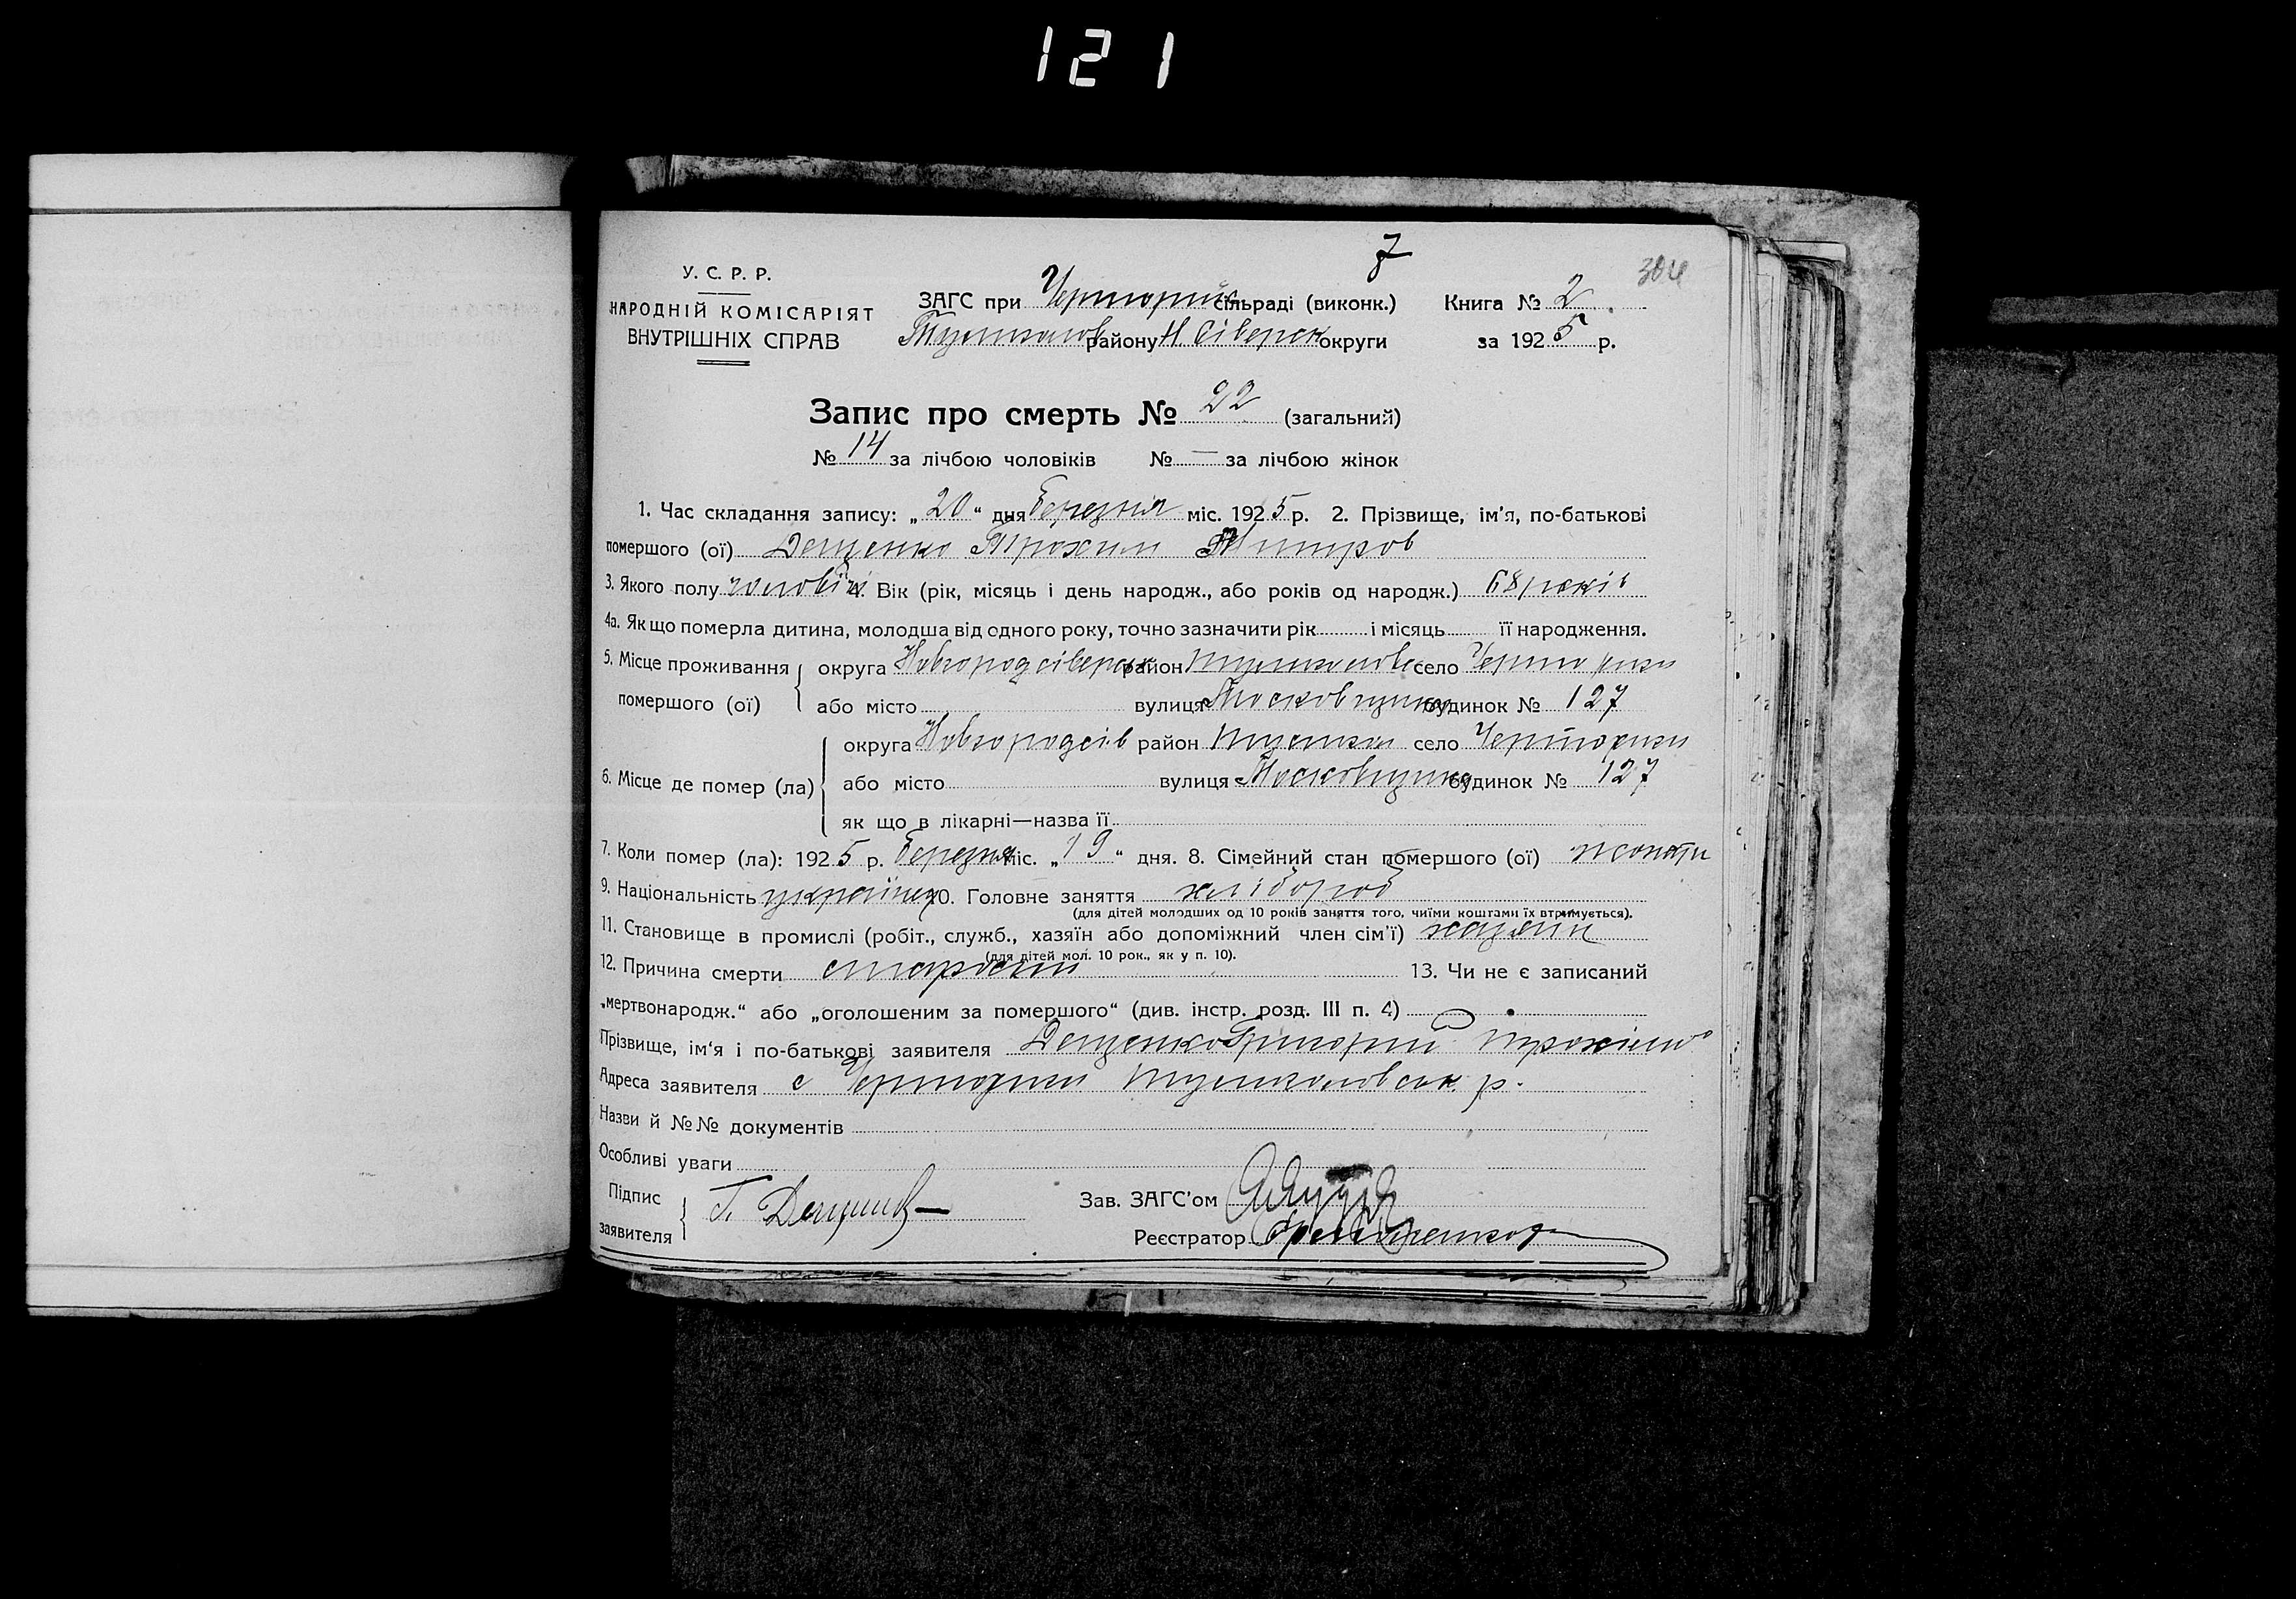 121
7
304
У. С. Р. Р.
НАРОДНІЙ КОМІСАРІЯТ
ВНУТРІШНІХ СПРАВ
ЗАГС при Черториг сільраді (виконк.) Книга № 2
району Н Сіверск округи за 1925 р.
Запис про смерть № 22 (загальний)
№ 14 за лічбою чоловіків № — за лічбою жінок
1. Час складання запису: „20“ дня березня міс. 1925 р. 2. Прізвище, ім’я, по-батькові
помершого (ої) Дещенко Трохим
3. Якого полу чоловіч 4. Вік (рік, місяць і день народж., або років од народж.) 68 років
4а. Як що померла дитина, молодша від одного року, точно зазначити рік і місяць її народження.
5. Місце проживання помершого (ої) округа Новгородсіверськ район село Черториги
або місто вулиця Московщина будинок № 127
6. Місце де помер (ла) округа Новгородсів район село Черториги
або місто вулиця Московщина будинок № 127
як що в лікарні—назва її
7. Коли помер (ла): 1925 р. березня міс. „19“ дня. 8. Сімейний стан помершого (ої) жонати
9. Національність українец 10. Головне заняття хлібороб
(для дітей молодших од 10 років заняття того, чиїми коштами їх втримується).
11. Становище в промислі (робіт., служб., хазяїн або допоміжний член сім’ї) хазяїн
(для дітей мол. 10 рок., як у п. 10).
12. Причина смерти старости 13. Чи не є записаний
„мертвонародж.“ або „оголошеним за помершого“ (див. інстр. розд. III п. 4)
Прізвище, ім’я і по-батькові заявителя Дещенко Григорий
Адреса заявителя с Черториги р.
Назви й №№ документів
Особливі уваги
Підпис заявителя Г. Дещенко
Зав. ЗАГС’ом
Реєстратор